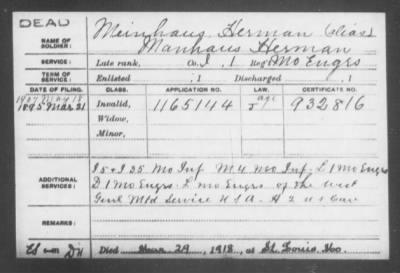 DEAD
NAME OF SOLDIER: Meinhaus Herman (alias)
Manhaus, Herman
SERVICE: Late rank, Co. I, 1 Reg't Mo Engrs
TERM OF SERVICE: Enlisted , 1 Discharged , 1
DATE OF FILING. CLASS. APPLICATION NO. LAW. CERTIFICATE NO.
1907 May 18
1895 Mar 21 Invalid, 1165144 age 932816
Widow,
Minor,
ADDITIONAL SERVICES: I 5 & I 35 Mo Inf M 4 Mo Inf. L 1 Mo Engrs
D 1 Mo Engrs. L Mo Engrs. of the West
Genl Mtd Service U S A. H 2 U S Cav
REMARKS:
Died Mar 29, 1918, at St. Louis, Mo.